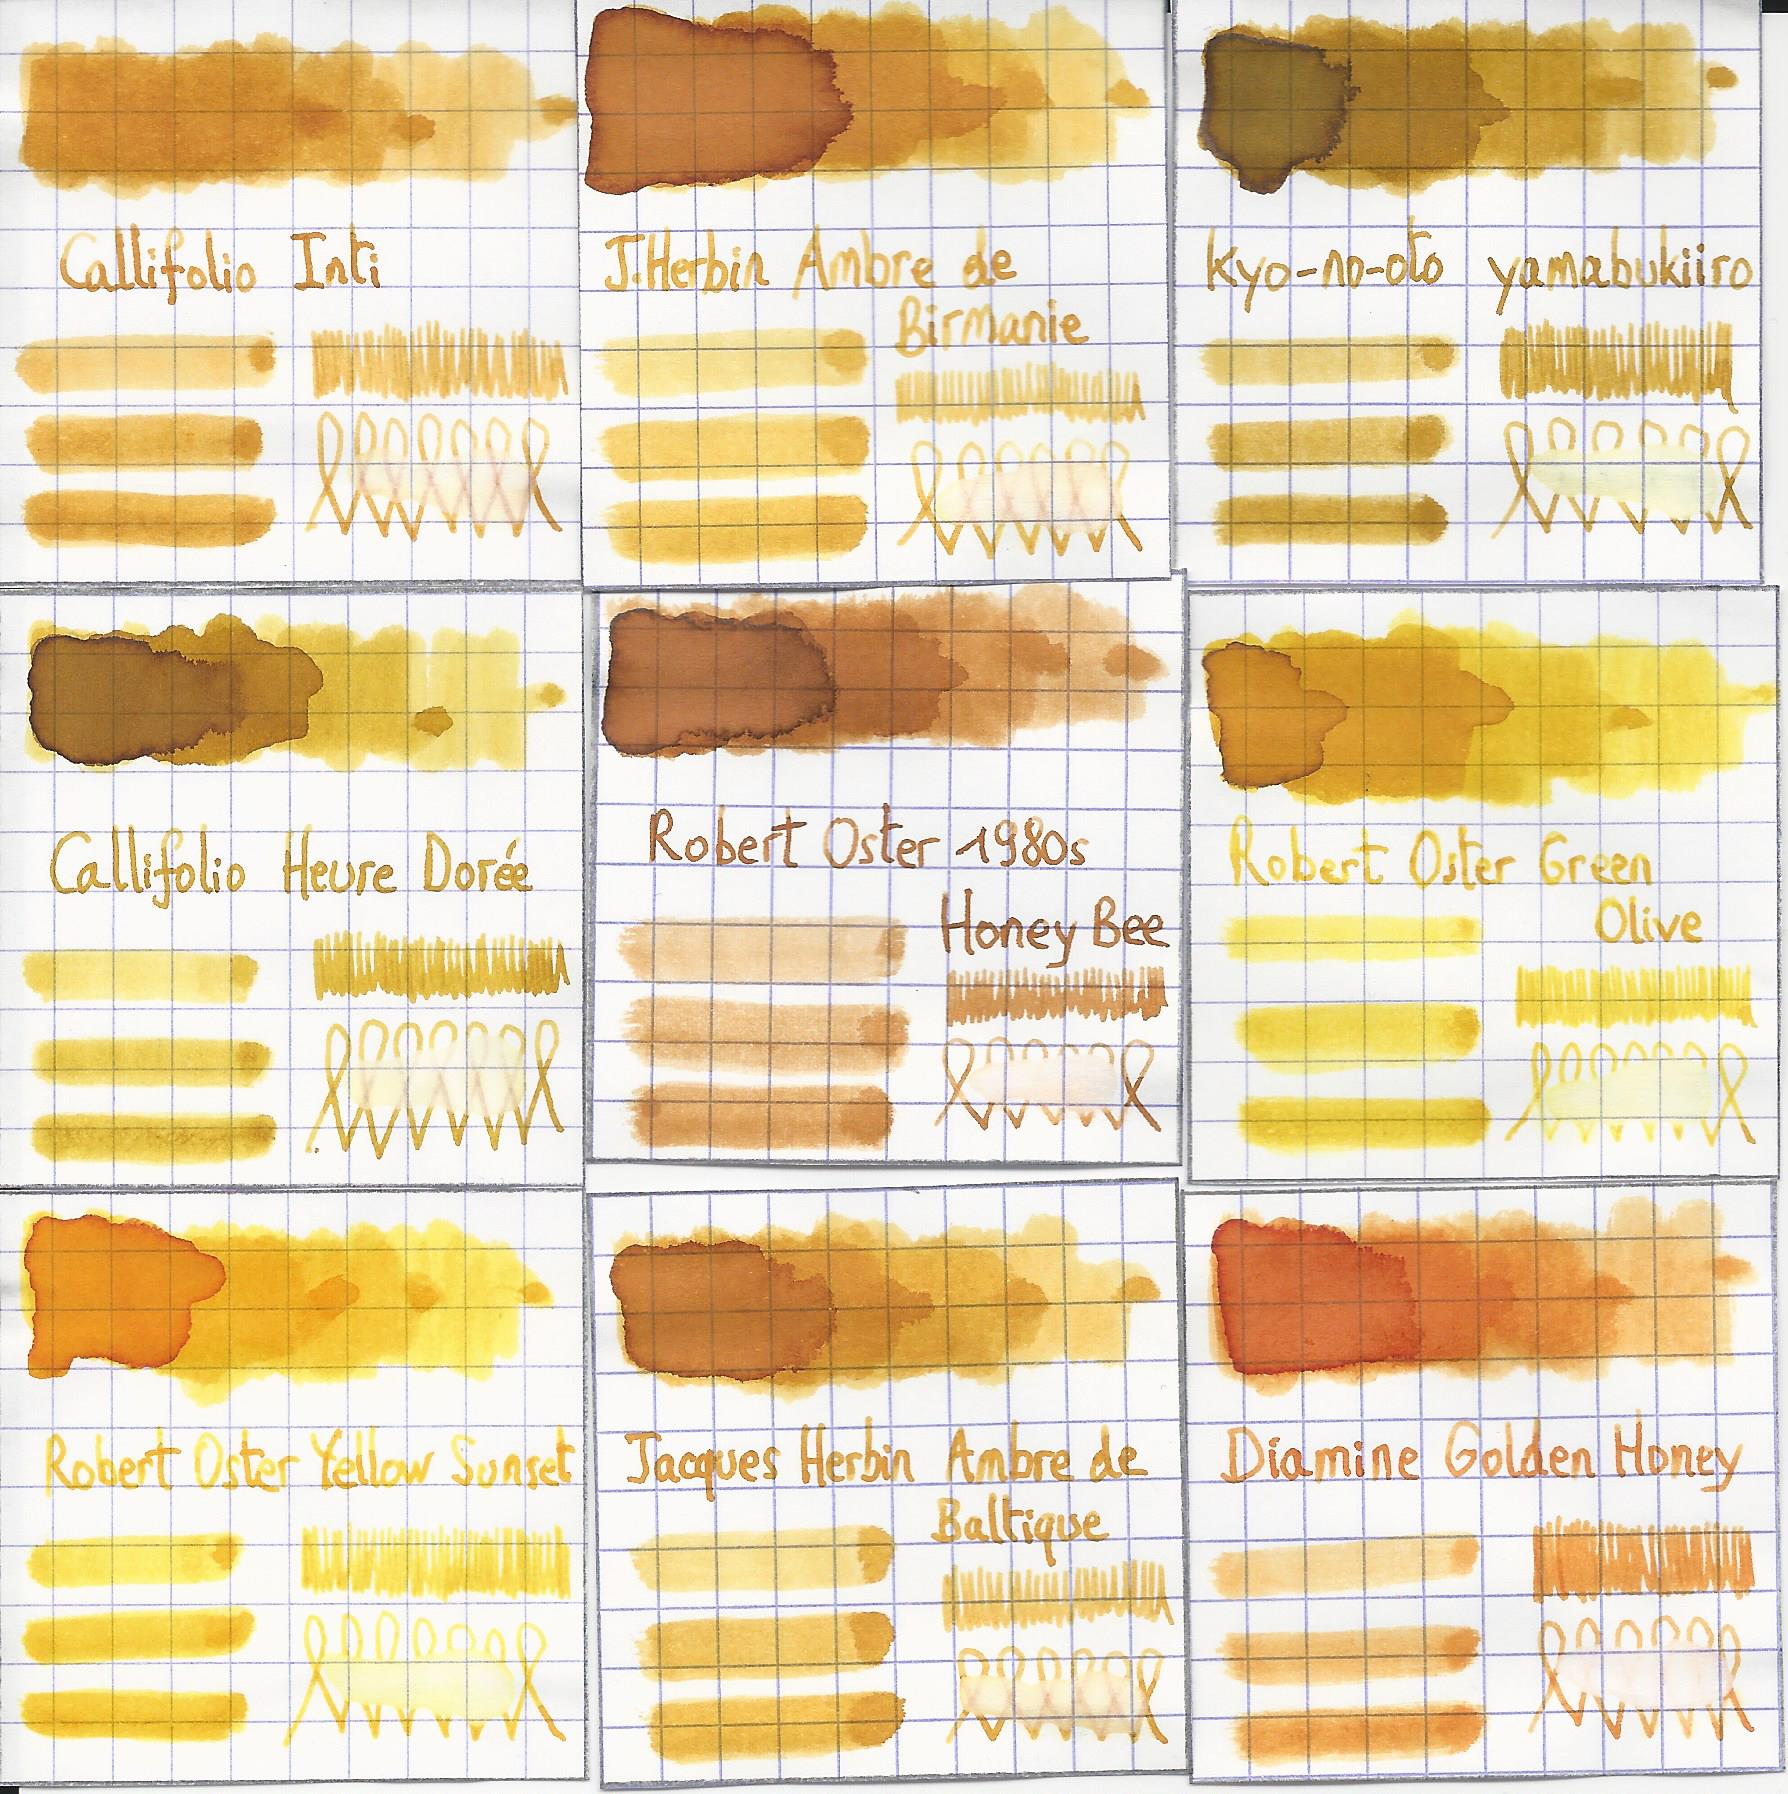 Callifolio Inti
J.Herbin Ambre de
Birmanie
Kyo-no-oto yamabukiiro
Callifolio Heure Dorée
Robert Oster 1980s
Honey Bee
Robert Oster Green
Olive
Robert Oster Yellow Sunset
Jacques Herbin Ambre de
Baltique
Diamine Golden Honey